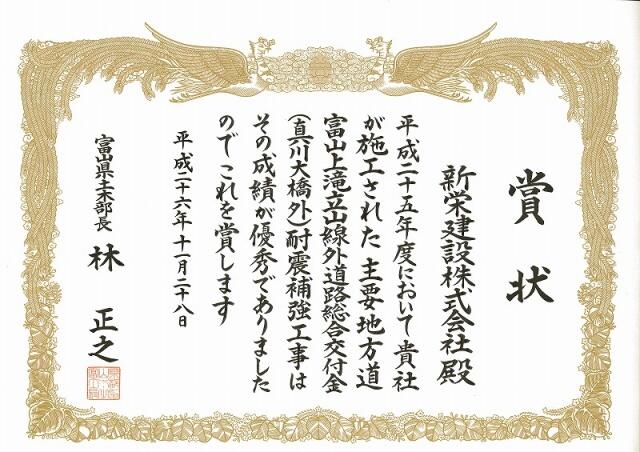 賞状
新栄建設株式会社殿
平成二十五年度において貴社
が施工された 主要地方道
富山上滝立山線外道路総合交付金
(真川大橋外)耐震補強工事は
その成績が優秀でありました
のでこれを賞します
平成二十六年十一月二十八日
富山県土木部長 林 正之